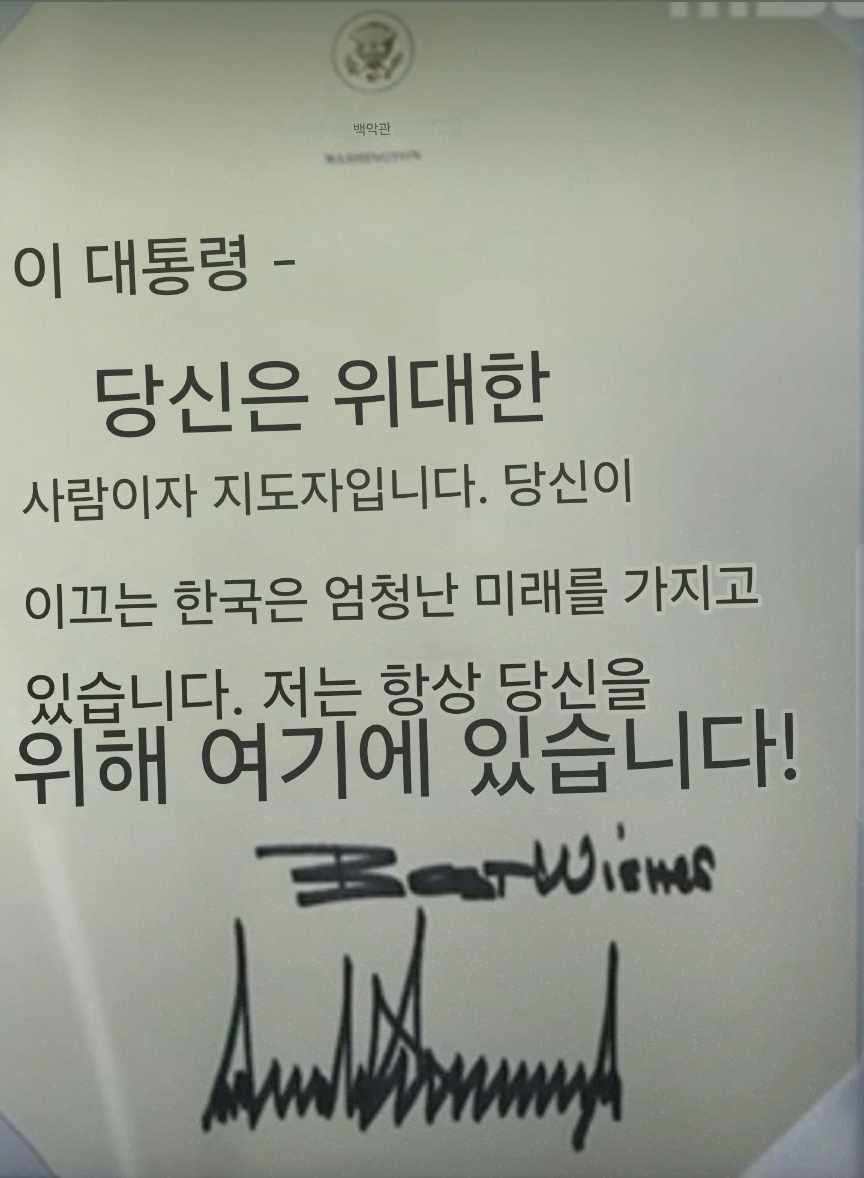 백악관
WASHINGTON
이 대통령 -
당신은 위대한
사람이자 지도자입니다. 당신이
이끄는 한국은 엄청난 미래를 가지고
있습니다. 저는 항상 당신을
위해 여기에 있습니다!
Best Wishes